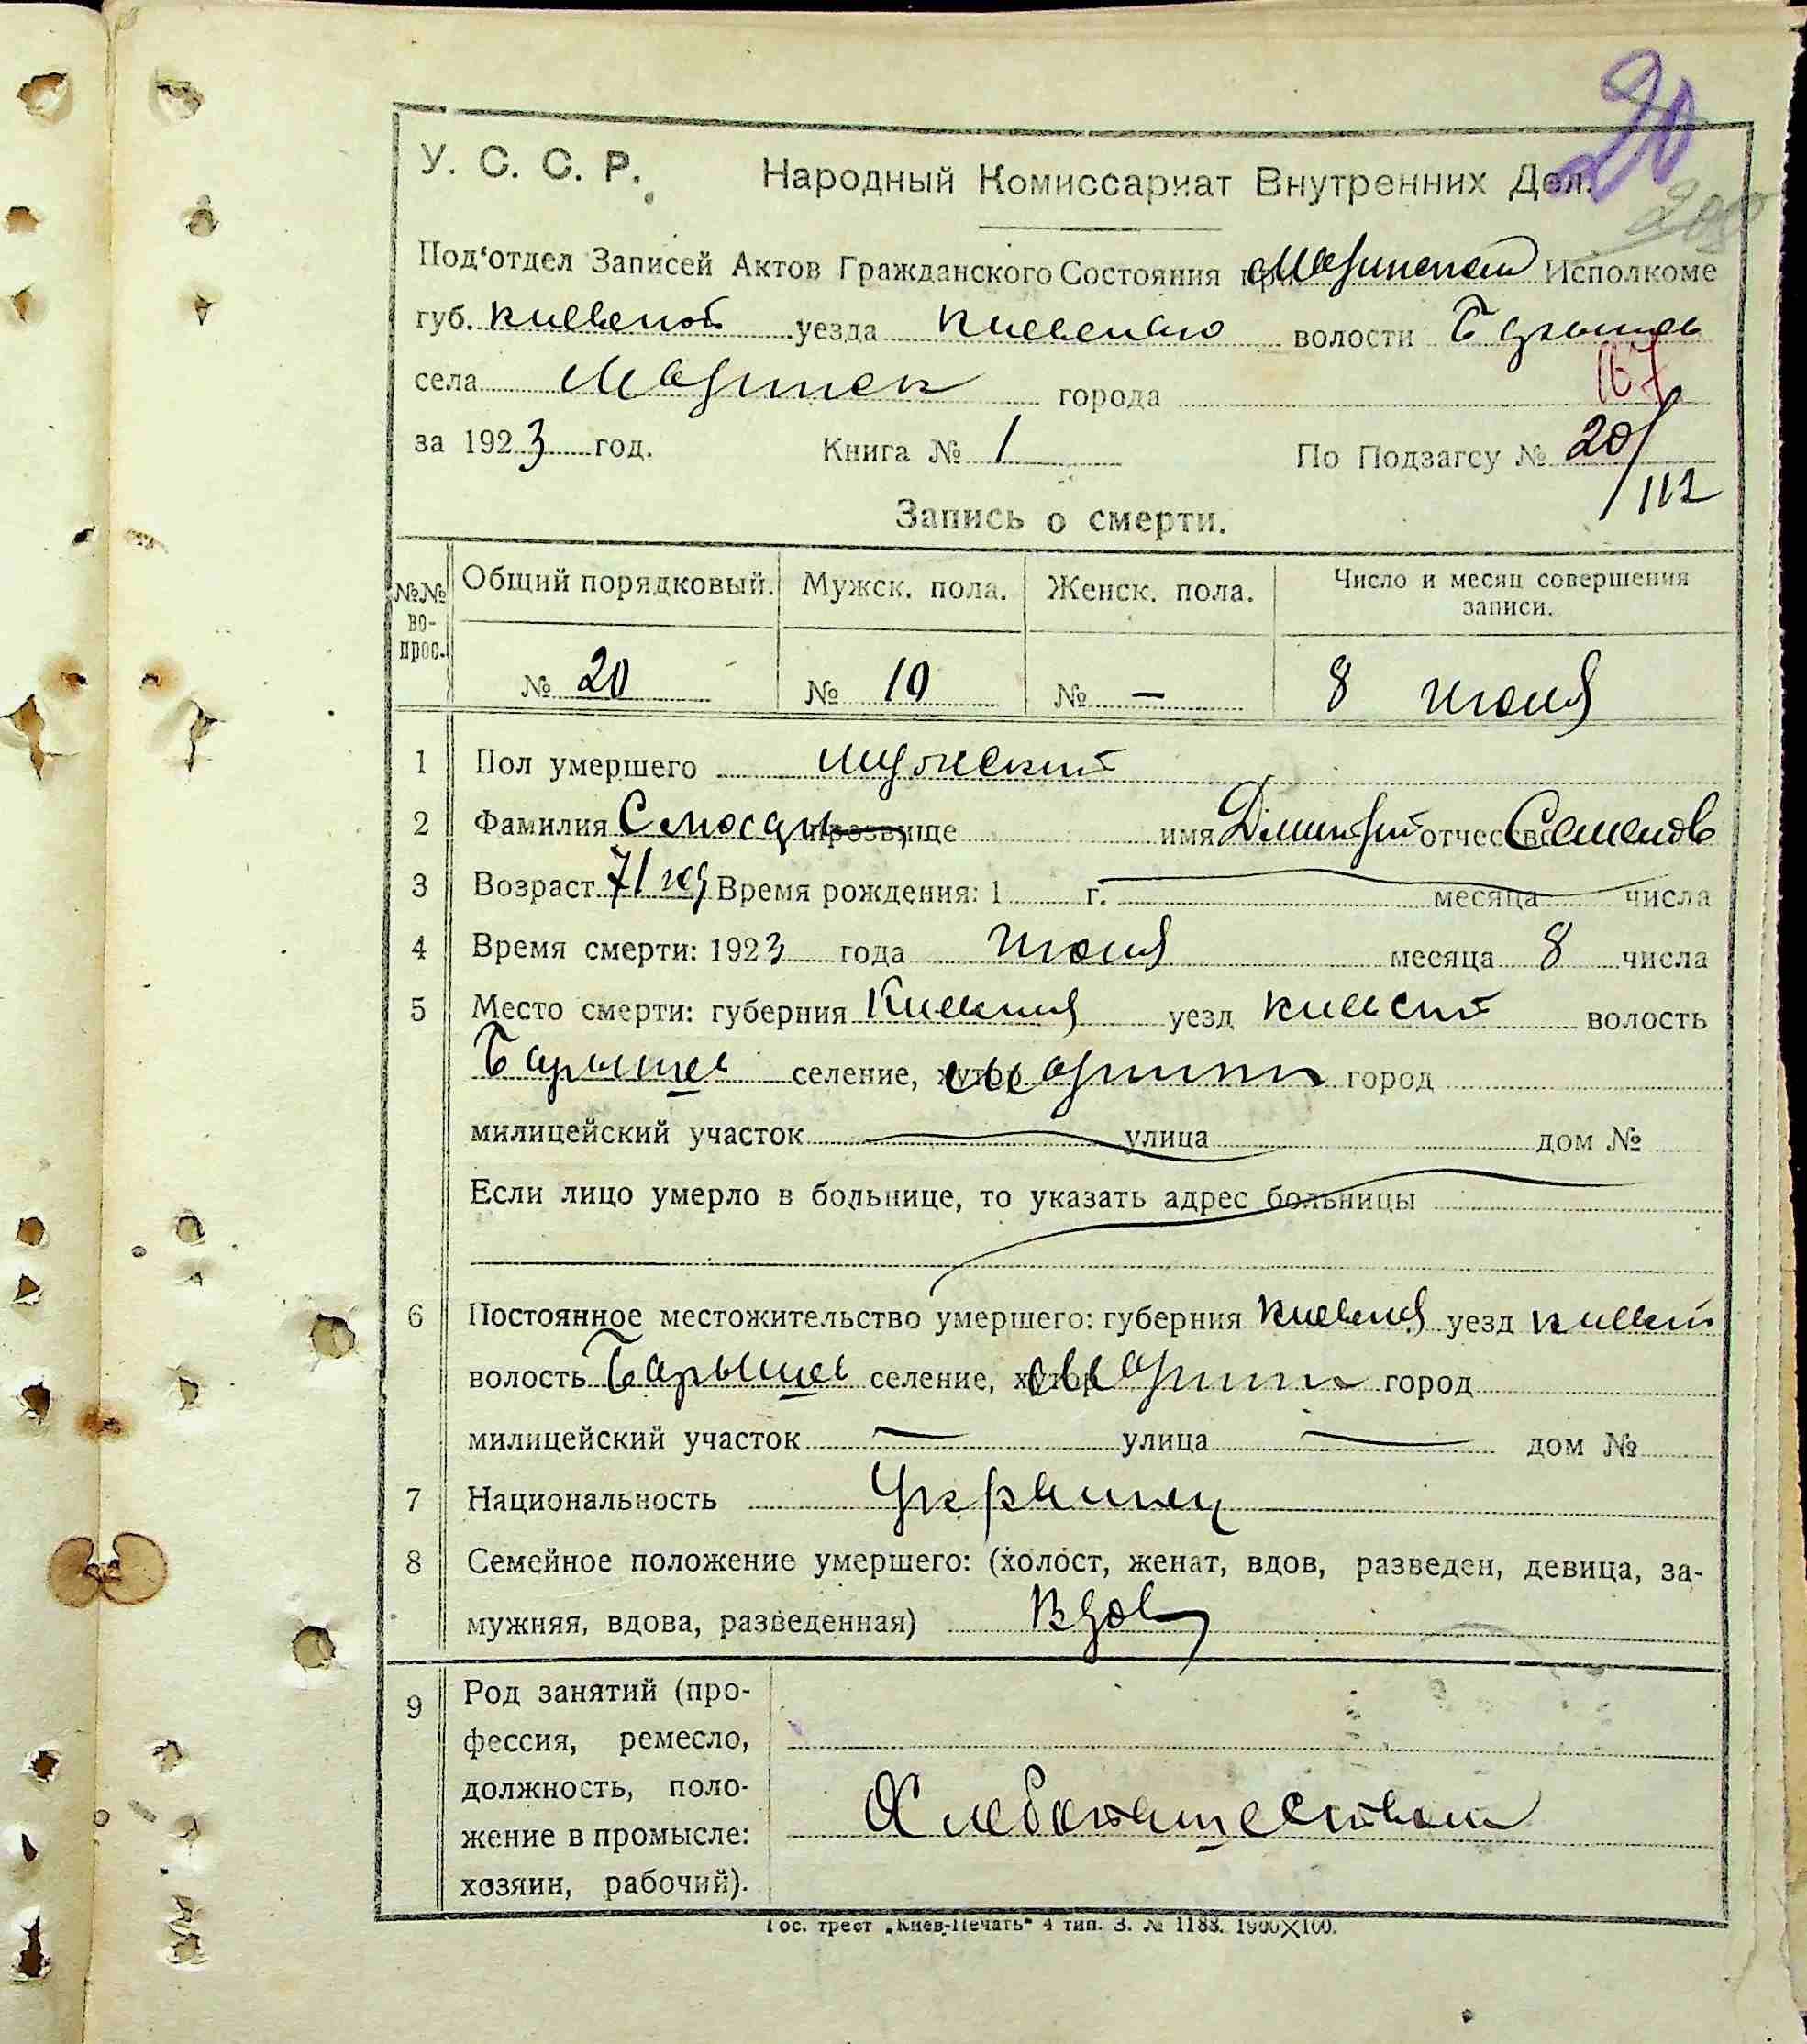 20
У. С. С. Р. Народный Комиссариат Внутренних Дел.
208
Под‘отдел Записей Актов Гражданского Состояния при Исполкоме
губ. Киевской уезда Киевского волости Барышев
села города
167
за 1923 год. Книга № 1 По Подзагсу № 20/
112
Запись о смерти.
№№ во-прос. Общий порядковый. Мужск. пола. Женск. пола. Число и месяц совершения записи.
№ 20 № 10 № — 8 июня
1 Пол умершего мужеский
2 Фамилия прозвище имя Дмитрий отчество Семенов
3 Возраст 71 год Время рождения: 1 г. месяца числа
4 Время смерти: 1923 года июня месяца 8 числа
5 Место смерти: губерния Киевская уезд Киевский волость
Барышев селение, хутор город
милицейский участок улица дом №
Если лицо умерло в больнице, то указать адрес больницы
6 Постоянное местожительство умершего: губерния Киевская уезд Киевский
волость Барышев селение, хутор город
милицейский участок — улица — дом №
7 Национальность Украинец
8 Семейное положение умершего: (холост, женат, вдов, разведен, девица, за-
мужняя, вдова, разведенная) Вдов
9 Род занятий (про-
фессия, ремесло,
должность, поло-
жение в промысле: Хлебопашеством
хозяин, рабочий).
Гос. трест „Киев-Печать“ 4 тип. З. № 1188. 1900×100.